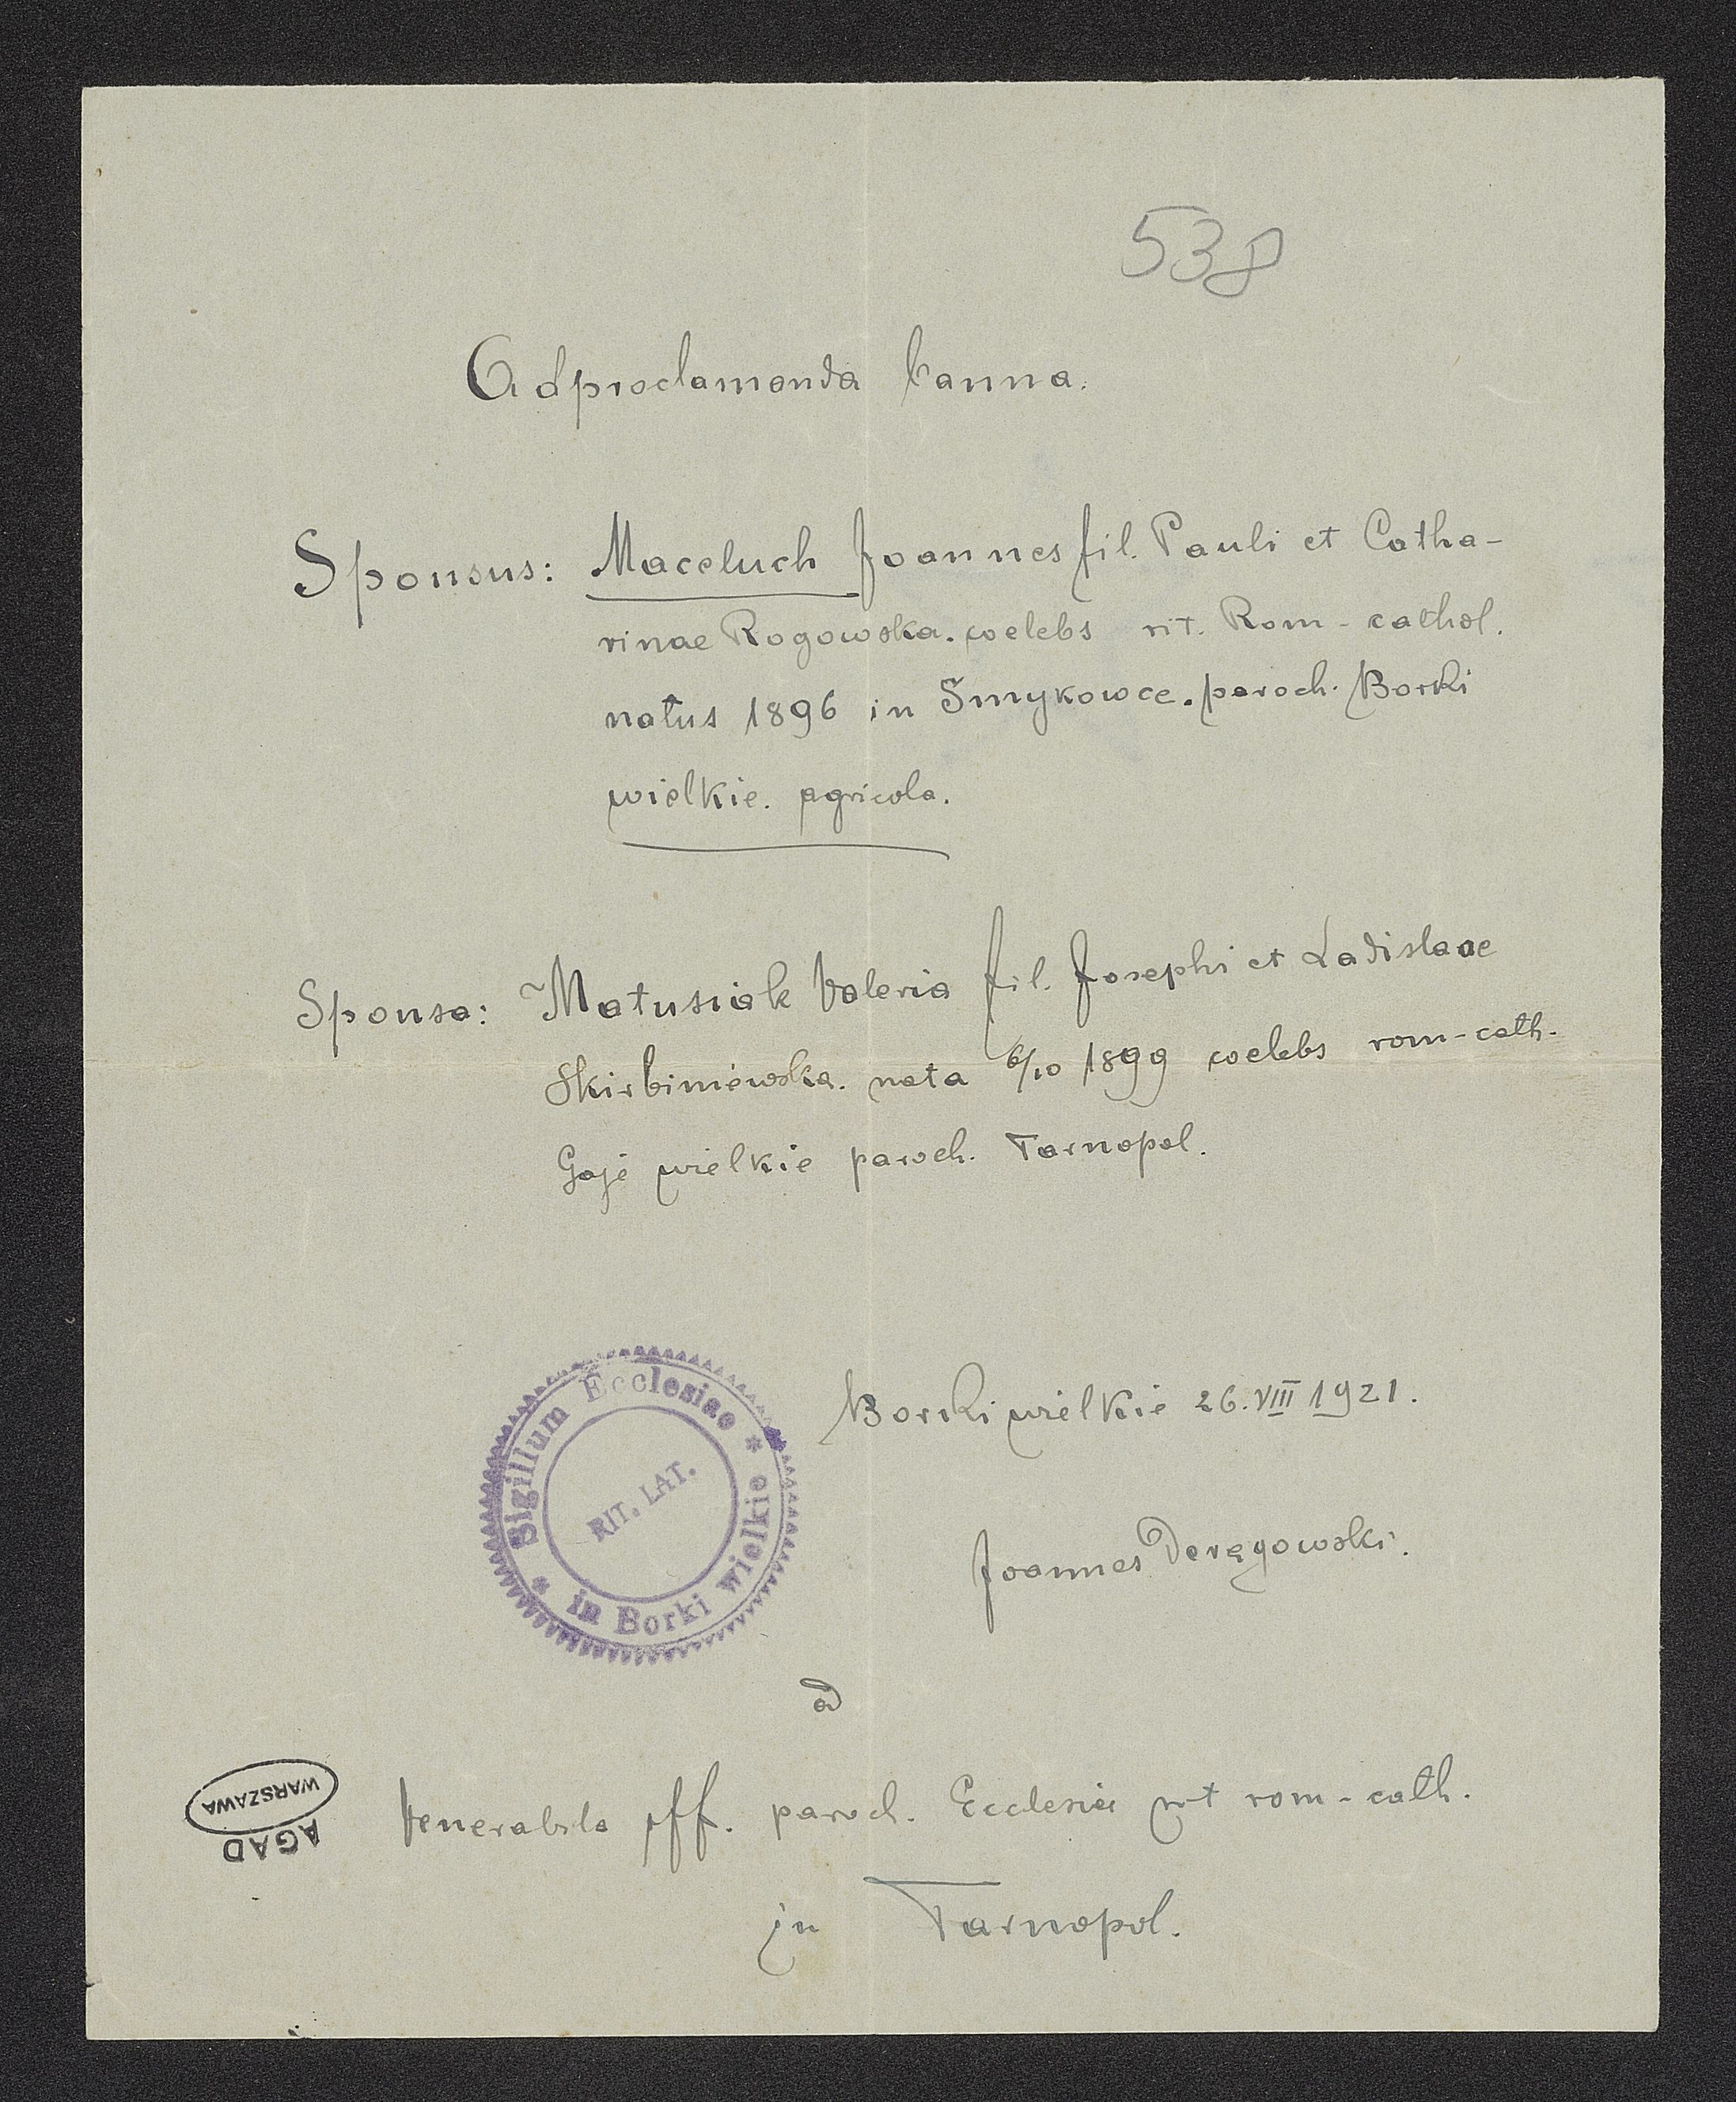 538
Adproclamanda banna.
Sponsus: Maceluch Joannes fil. Pauli et Catha-
rinae Rogowska. coelebs rit. Rom-cathol.
natus 1896 in Smykowce. paroch. Borki
wielkie. agricola.
Sponsa: Matusiak Valeria fil. Josephi et Ladislaae
Skirbiniewska. nata 6/10 1899 coelebs rom-cath.
Gaje wielkie paroch. Tarnopol.
Borki wielkie 26. VIII 1921.
Sigillum Ecclesiae * in Borki wielkie *
RIT. LAT.
Joannes Deręgowski.
ad
Venerabile off. paroch. Ecclesiae rit rom-cath.
in Tarnopol.
AGAD
WARSZAWA